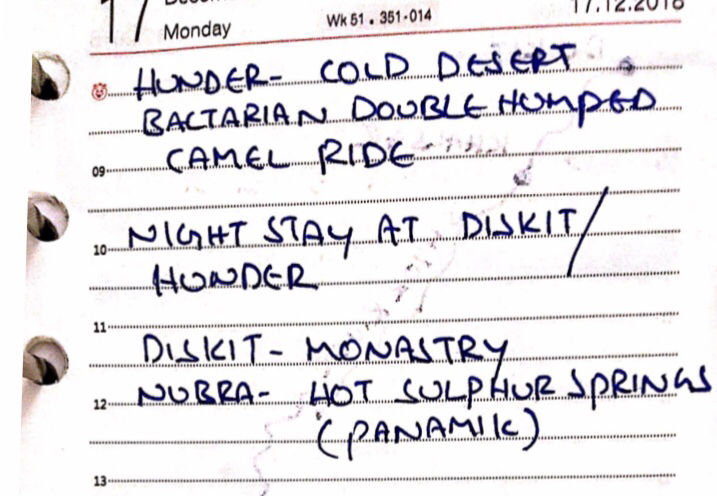 17
Monday
Wk 51 . 351-014
17.12.2018
HUNDER- COLD DESERT
BACTARIAN DOUBLE HUMPED
09
CAMEL RIDE
10
NIGHT STAY AT DISKIT/
HUNDER
11
DISKIT- MONASTRY
12
NUBRA- HOT SULPHUR SPRINGS
(PANAMIK)
13